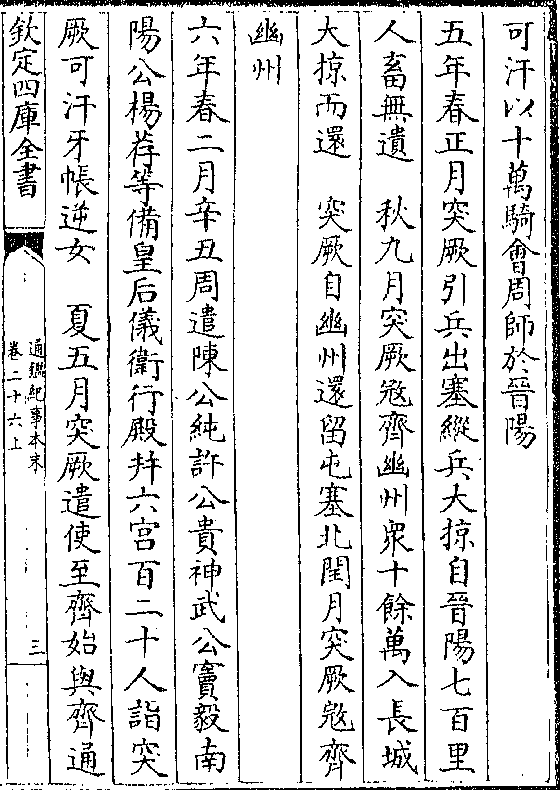 可汗以十萬騎會周師於晉陽
五年春正月突厥引兵出塞縱兵大掠自晉陽七百里
人畜無遺　秋九月突厥宼齊幽州衆十餘萬入長城
大掠而還　突厥自幽州還留屯塞北閏月突厥宼齊
幽州
六年春二月辛丑周遣陳公純許公貴神武公竇毅南
陽公楊荐等備皇后儀衛行殿幷六宫百二十人詣突
厥可汗牙帳逆女　夏五月突厥遣使至齊始與齊通
欽定四庫全書
通鑑紀事本末
卷二十六上
三